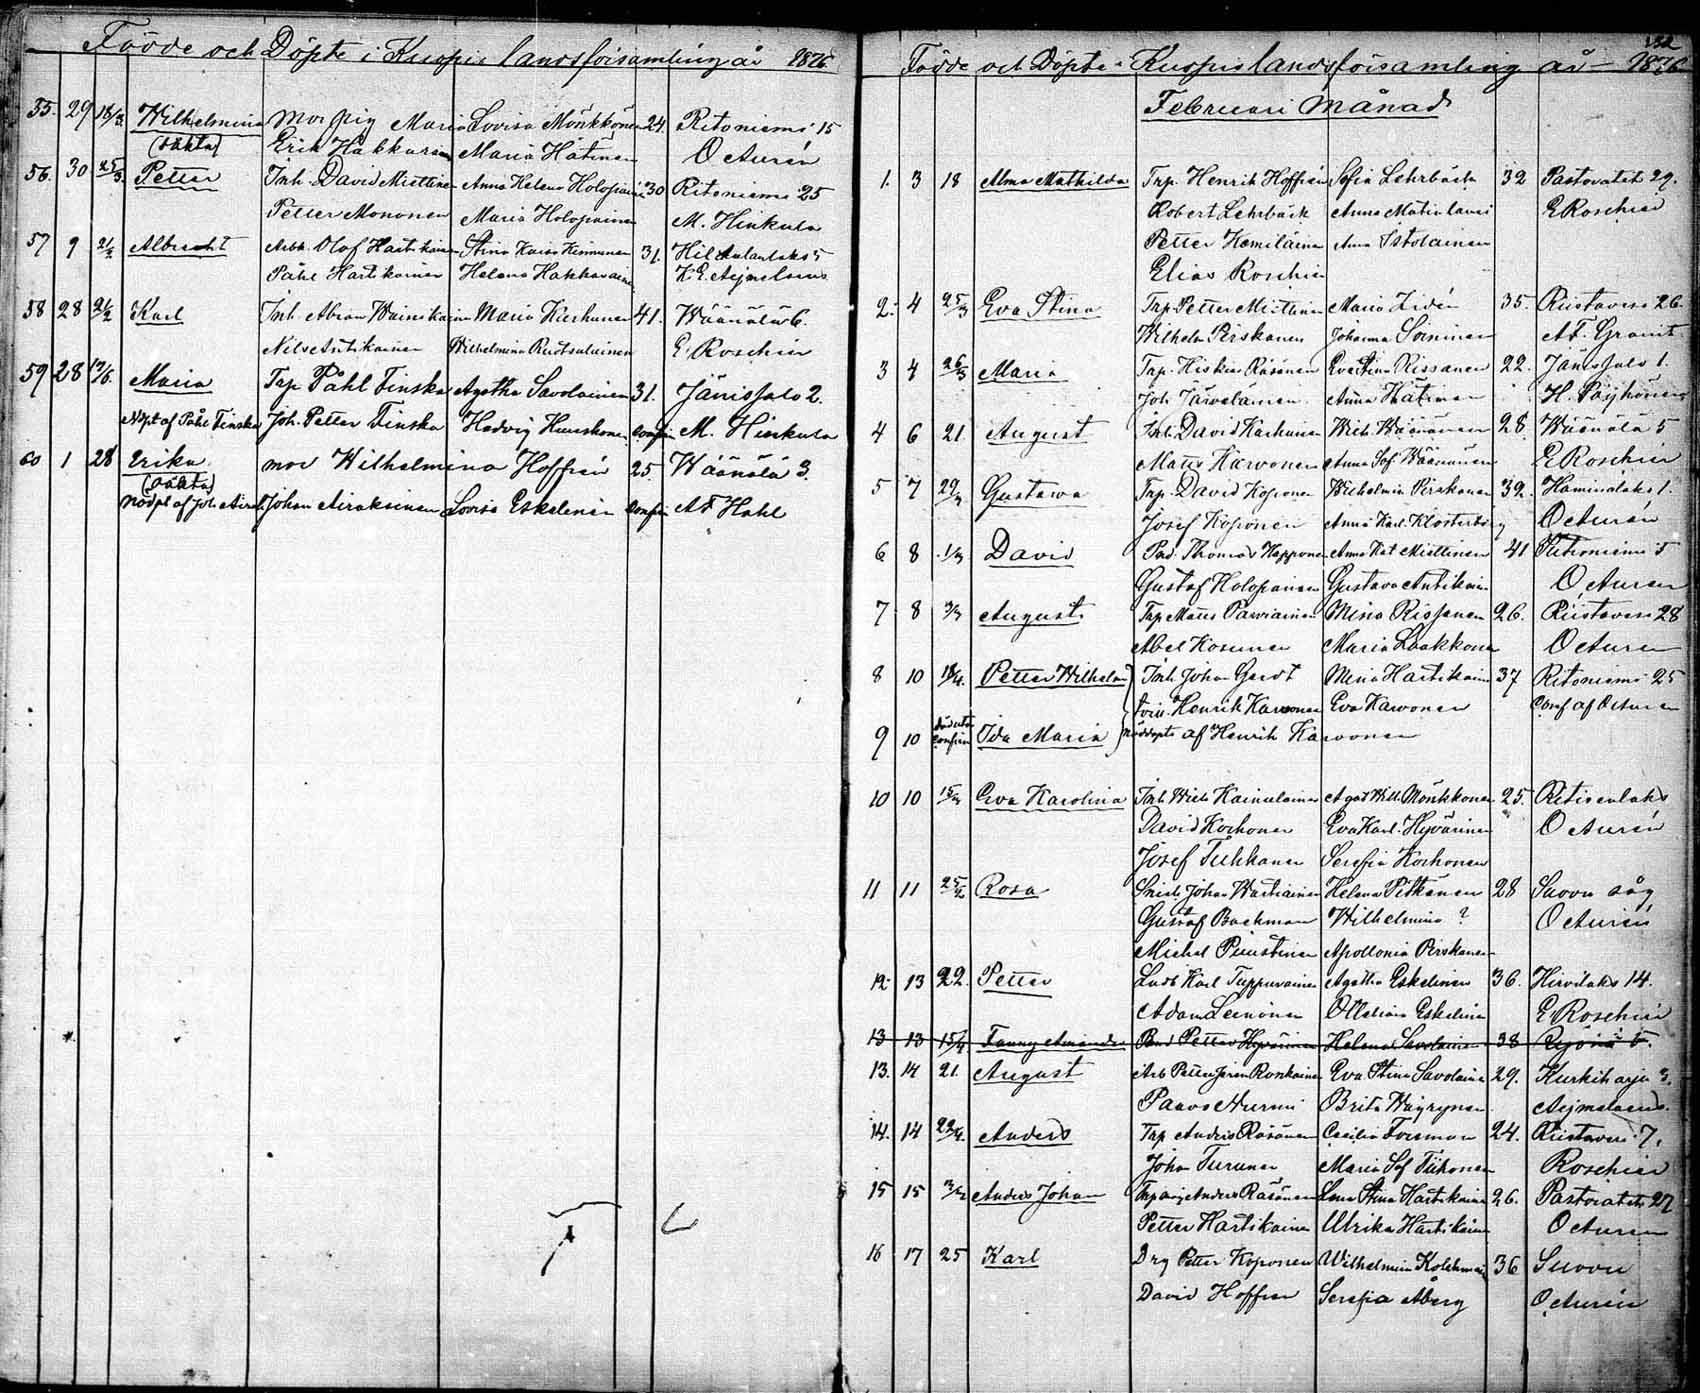 Födde och Döpte i Kuopio landsförsamling år 1876
35. 29 18/3 Wilhelmina Mor pig Maria Lovisa Mönkkönen 24. Ritoniemi 15
(oäkta) Erik Hakkarain Maria Hätinen O Aurén
56. 30 25/3 Petter Inh. David Miettinen Anna Helena Holopain 30 Ritoniemi 25
Petter Mononen Maria Holopainen M. Hinkula
57 9 21/2 Albrecht Arb. Olof Hartikainen Stina Kaisa Kinnunen 31. 5
Påhl Hartikainen Helena Hakkarainen K. E. Aejmelaeus
58 28 21/2 Karl Inh. Abram Wäinikainen Maria Kerhunen 41. Wäänälä 6.
Nils Antikainen Wilhelmina Ruotsalainen E. Roschier
59 28 Maria Trp Påhl Finska Agatha Savolainen 31. Jänissalo 2.
Nöpt af Påhl Finska Joh. Petter Finska Hedvig Huuskonen confir M. Hinkula
60 1 28 Erika mor Wilhelmina Hoffrén 25 Wäänälä 3.
(oäkta)
Nödpt af Joh. Airak Johan Airaksinen Lovisa Eskelinen Confir A F Hahl
132
Födde och Döpte i Kuopio landsförsamling år 1876
Februari Månad
1. 3 18 Alma Mathilda Trp. Henrik Hoffrén Sofia Lehrbäck 32 Pastoratet 29.
Robert Lehrbäck Anna E Roschier
Petter Kemiläinen Anna
Elias Roschier
2. 4 25/3 Eva Stina Trp. Petter Miettinen Maria Lidén 35. Riistavesi 26.
Wilhelm Pirskanen Johanna Sorninen A F. Granit
3 4 26/3 Maria Trp. Hiskias Räsänen Eva Stina Rissanen 22. Jänissalo 1.
Joh. Järveläinen Anna Hätinen H. Pöyhönen
4 6 21. August Inh. David Karhunen Wilh. Wäänänen 28. Wäänälä 5
Matts Karvonen Anna Sof. Wäänänen E Roschier
5 7 Gustava Trp. David Koponen Wilhelmin Pirskanen 39. Haminalaks 1.
Josef Koponen Anna Karl. Klosterberg O Aurén
6 8 David Bad. Thomas Happonen Anna Kat Miettinen 41 5
Gustaf Holopainen Gustava Antikain O Auren
7 8 August Trp Matts Parviainen Mina Rissanen 26. Riistavesi 28
Abel Kosunen Maria Laakkonen O Auren
8 10 Petter Wilhelm Inh Johan Gerdt Mina Hartikain 37 Ritoniemi 25
tvill. Henrik Karvonen Eva Karvonen Conf af O Auren
9 10 Ida Maria Nöddöpte af Henrik Karvonen
10 10 Eva Karolina Inh Wilh Kainulainen Agat Will. Mönkkonen 25. Ritisenlaks
David Korhonen Eva Karl. Hyvärinen O Aurén
Josef Tuhkanen Serafia Korhonen
11 11 25/2 Rosa Smed. Johan Wartiainen Helena Pitkänen 28 Suovu såg
Gustaf Backman Wilhelmina ? O Aurén
Michel Puustinen Apollonia Pirskanen
12 13 22. Petter Karl Tuppurainen Agatha Eskelinen 36. Hirvilaks 14.
Adam Leinonen Eskelinen E Roschier
13 13 15/4 Fanny Amanda Bond Petter Hyvärinen Helena Savolainen 38 5.
13. 14 21. August Arb Petter Jeron Ronkainen Eva Stina Savolain 29. Kurkiharju 3.
Paavo Nurmi Brita Wäyrynen Aejmelaeus.
14. 14 Anders Trp Anders Räsänen Cecilia Forsman 24. Riistavesi 7.
Johan Turunen Maria Sof Tiihonen Roschier
15 15 Anders Johan Anders Räsänen Lena Stina Hartikain 26. Pastoratet 27
Petter Hartikainen Ulrika Hartikain O Auren
16 17 25 Karl Drg Petter Koponen Wilhelmina Kolehmai 36 Suovu
David Hoffren Serafia Åberg O Aurén